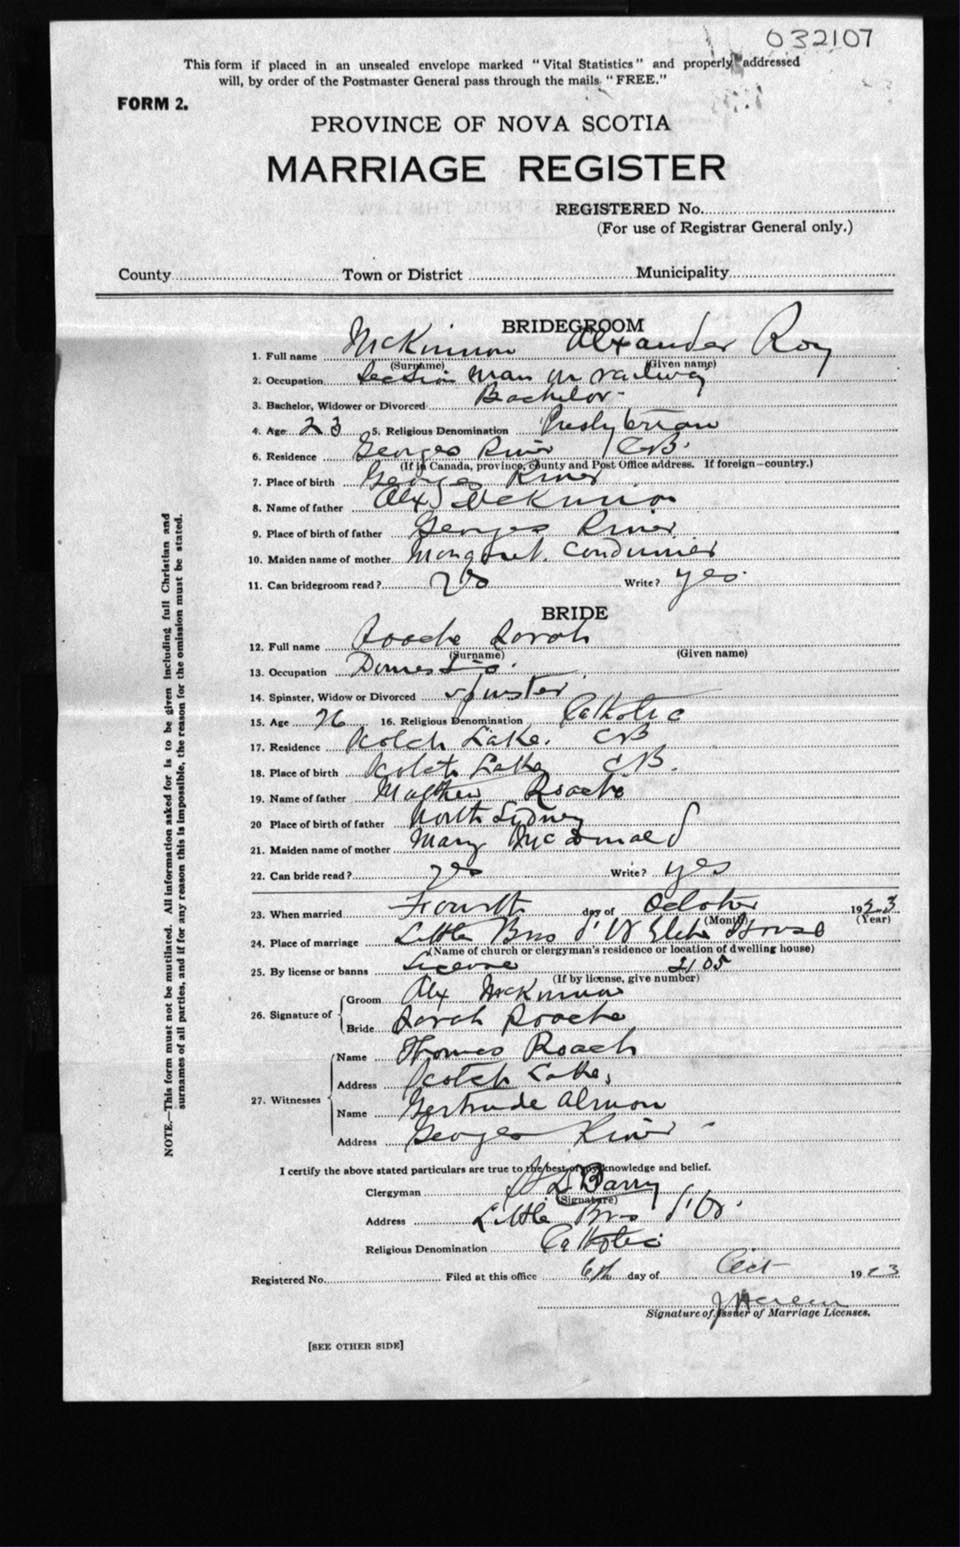 032107
This form if placed in an unsealed envelope marked "Vital Statistics" and properly addressed
will, by order of the Postmaster General pass through the mails "FREE."
FORM 2.
PROVINCE OF NOVA SCOTIA
MARRIAGE REGISTER
REGISTERED No.
(For use of Registrar General only.)
County Town or District Municipality
BRIDEGROOM
1. Full name McKinnon Alexander Roy
(Surname) (Given name)
2. Occupation Section man on railway
3. Bachelor, Widower or Divorced Bachelor
4. Age 23 5. Religious Denomination Presbyterian
6. Residence Georges River CB
(If in Canada, province, county and Post Office address. If foreign—country.)
7. Place of birth Georges River
8. Name of father Alex McKinnon
9. Place of birth of father Georges River
10. Maiden name of mother Margaret
11. Can bridegroom read? yes Write? yes
BRIDE
12. Full name Roache Sarah
(Surname) (Given name)
13. Occupation Domestic
14. Spinster, Widow or Divorced spinster
15. Age 26 16. Religious Denomination Catholic
17. Residence Scotch Lake. CB
18. Place of birth Scotch Lake CB.
19. Name of father Matthew Roache
20 Place of birth of father North Sidney
21. Maiden name of mother Mary McDonald
22. Can bride read? yes Write? yes
23. When married Fourth day of October 1923
(Month) (Year)
24. Place of marriage Little Bras d'Or Glebe House
(Name of church or clergyman's residence or location of dwelling house)
25. By license or banns License 2105
(If by license, give number)
26. Signature of
Groom Alx McKinnon
Bride Sarah Roache
27. Witnesses
Name Thomas Roach
Address Scotch Lake,
Name Gertrude Almon
Address Georges River
I certify the above stated particulars are true to the best of my knowledge and belief.
Clergyman Barry
(Signature)
Address Little Bras d'Or
Religious Denomination Catholic
Registered No. Filed at this office 6th day of Oct 1923
Signature of Issuer of Marriage Licenses.
[SEE OTHER SIDE]
NOTE.—This form must not be mutilated. All information asked for is to be given including full Christian and
surnames of all parties, and if for any reason this is impossible, the reason for the omission must be stated.